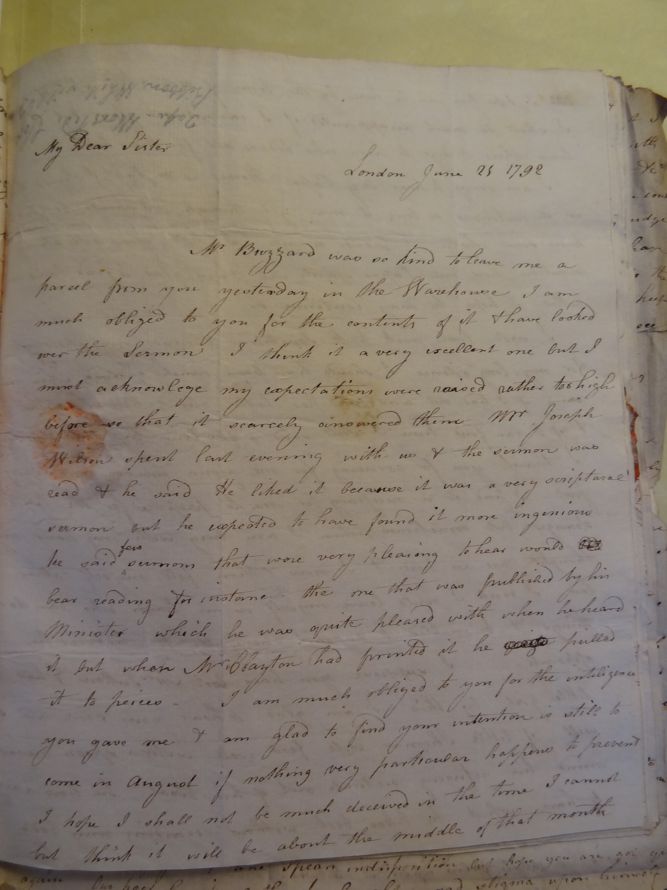 My Dear Sister
London June 21 1792
Mr Buzzard was so kind to leave me a
parcel from you yesterday in the Warehouse I am
much obliged to you for the contents of it & have looked
over the Sermon I think it a very excellent one but I
must acknowlege my expectations were raised rather to high
before so that it scarcely answered them Mr Joseph
Wilson spent last evening with us & the sermon was
read & he said He liked it because it was a very scriptural
sermon but he expected to have found it more ingenious
he said few sermons that were very pleasing to hear would
bear reading for instance the one that was published by his
Minister which he was quite pleased with when he heard
it but when Mr Clayton had printed it he pulled
it to peices - I am much obliged to you for the intiligence
you gave me & am glad to find your intention is still to
come in August if nothing very particular happens to prevent
I hope I shall not be much deceived in the time I cannot
but think it will be about the middle of that month